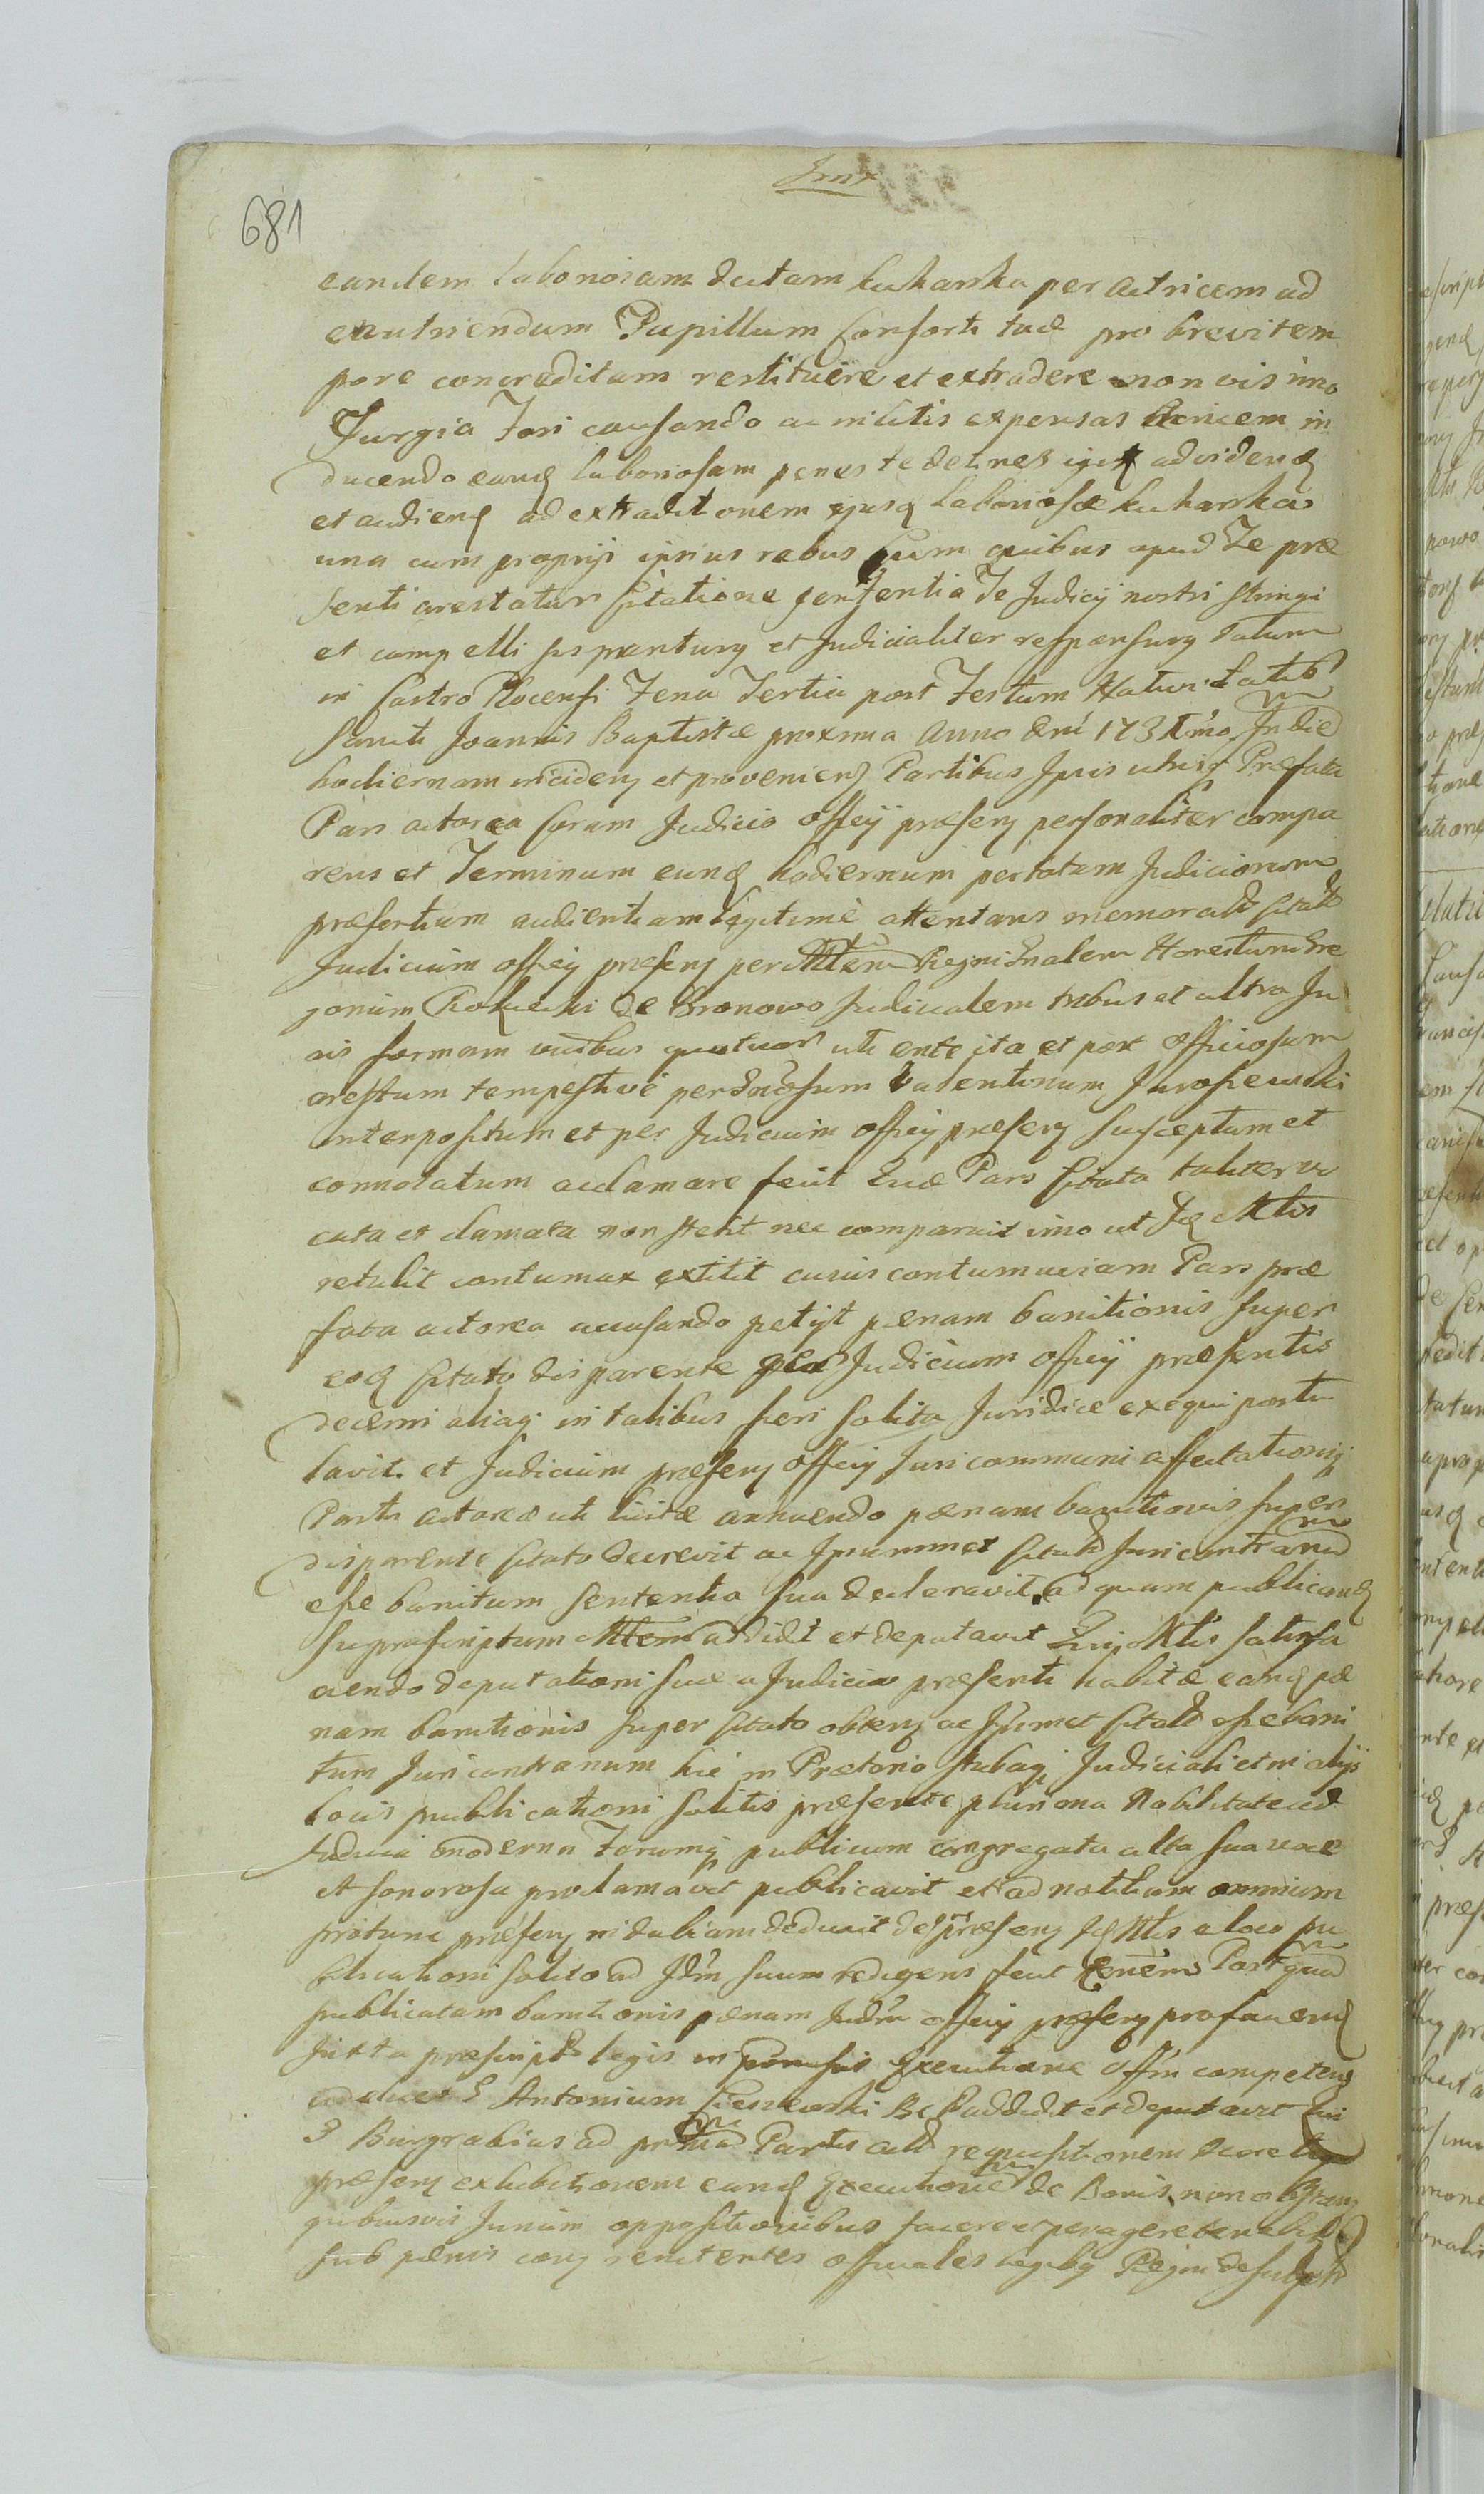 681
eandem laboriosam dictam kucharka per actricem ad
enutriendum Pupillum Consorti tuæ pro brevi tem
pore concreditam restituere et extradere non vis imo
Jurgia Fori causando ac in litis expensas Actricem in
ducendo eandq laboriosam penes te detines adviden
et audienq ad extraditionem ejusq laboriosæ kucharka
una cum proprijs ipsius rebus cum quibus apud Te præ
senti arestatur Citatione sententia Te Judicij nostri stringi
et compelli et Judicialiter responsurq Datum
in Castro Plocensi Feria Tertia post Festum Nativitatis
Sancti Joannis Baptistæ proxima Anno Dni 173 In die
hodiernam incidenq et provenienq Partibus Ipsis Præfata
Pars actorea coram Judicio officij præsenq personaliter compa
rens et Terminum eunq hodiernum per totam Judiciorum
præsertium audientiam legitime attentans memorat citat
Judicium officij præsenq per Mlem Regni Gnalem Honestum Gre
gorium de Bronowo Judicialem tribus et ultra Ju
ris formam vicibus quatuor uti ante ita et post officiosum
arestum tempestive per Gnosum Valentinum
interpositum et per Judicium officij præsenq susceptum et
connotatum acclamare fecit Quæ Pars Citata taliter vo
cata et clamata non stetit nec comparuit imo ut Idq Mlis
retulit contumax extitit cuius contumaciam Pars præ
fata actorea accusando petijt pænam banitionis super
eoq citato disparente per Judicium officij præsentis
decerni aliaq in talibus fieri solita Juridice exequi postu
lavit. et Judicium præsenq officij Juri communi affectationiq
Partis actoreæ uti licitæ annuendo pænam banitionis super
disparente citato decrevit ac Ipsummet citat Juri contrariu
esse banitum sententia sua declaravit ad quam publicanq
suprascriptum Mlem addidit et deputavit Quiq Mlis satisfa
ciendo deputationi suæ a Judicio præsenti habitæ eanq pæ
nam banitionis super citato obtenq ac Ipsumet citat esse bani
tum Juri contrarium hic in Prætorio stubaq Judiciali et in alijs
locis publicationi solitis præsente plurima Nobilitate ad
Judicia moderna Forumq publicum congregata alta sua voce
et sonorosa proclamavit publicavit et ad notitiam omnium
protunc præsenq deduxit de præsenq Idq Mlis a loco pu
blicationi solito ad Jdm suum redigens fecit Post quam
publicatam banitionis pænam Judm officij præsenq profacienq
Juxta præscript legis in executione offm competens
Antonium addidit et deputavit Qui
Burgrabius ad primam Partis act requisitionem Decreti
præsenq exhibitionem eanq Executione de Bonis non obstan
quibusvis Jurium oppositionibus facere et peragere tenebit
sub pænis in renitentes officiales legibq Regni descript